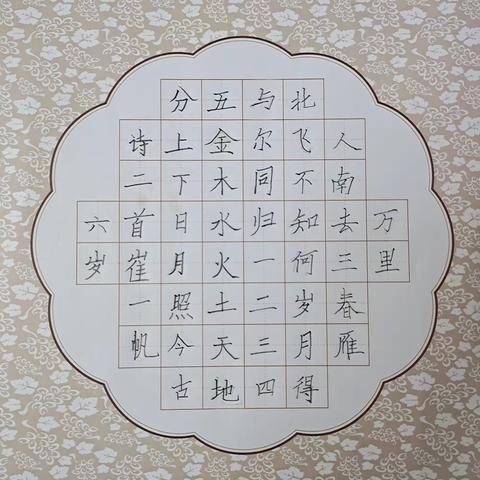 万里
人南去三春雁
北飞不知何岁月得
与尔同归一二三四
五金木水火土天地
分上下日月照今古
诗二首崔一帆
六岁